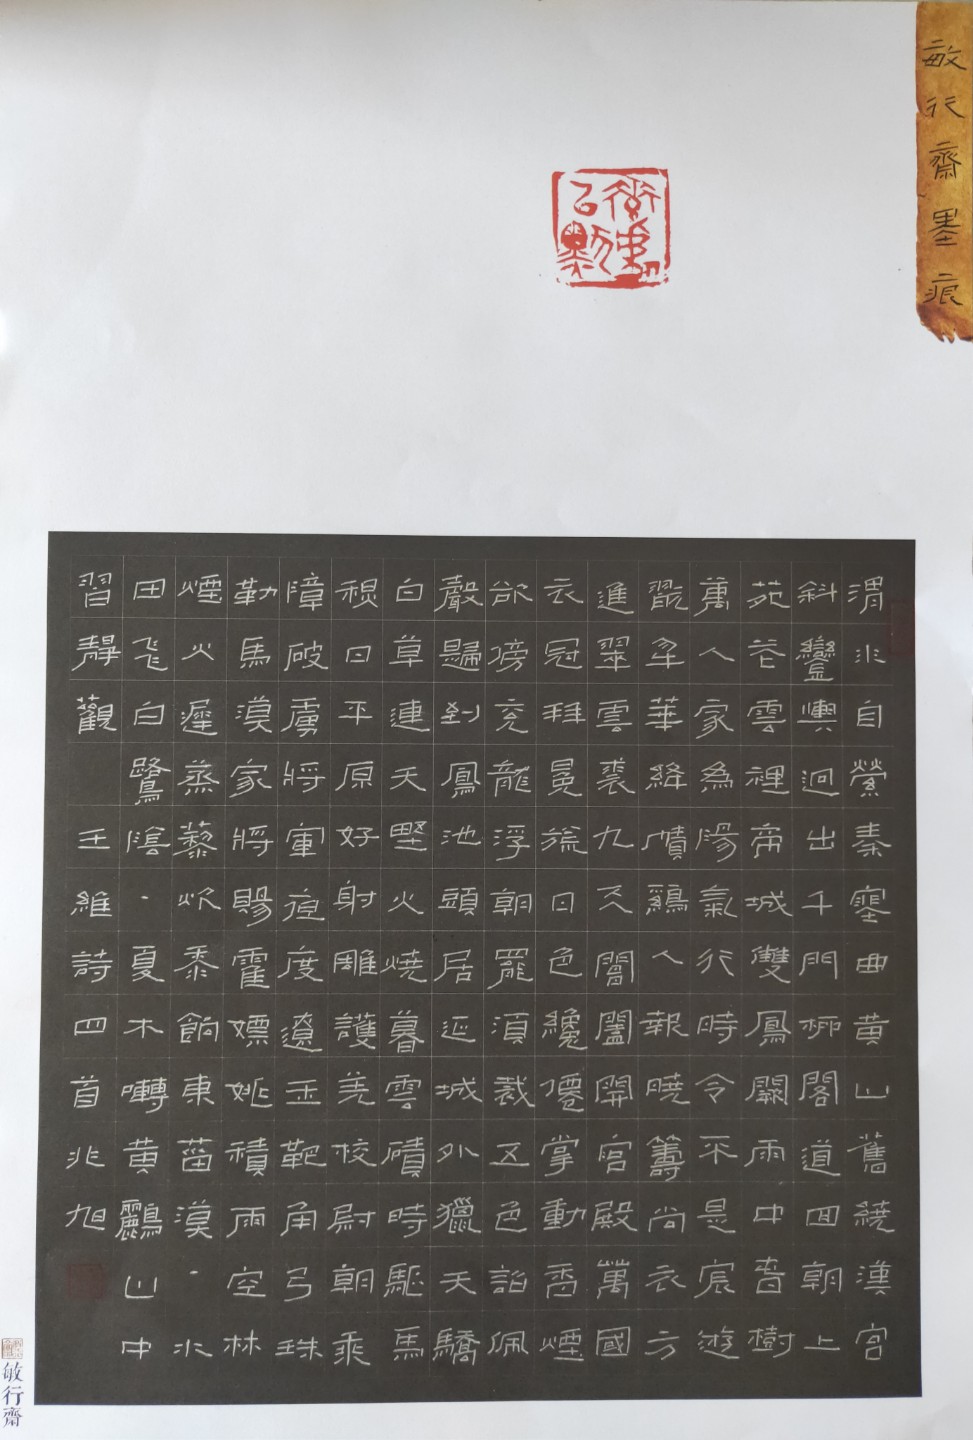 敏行齋墨痕
渭水自縈秦塞曲黄山舊繞漢宮
斜鑾輿迥出千門柳閣道回朝上
苑花雲裡帝城雙鳳闕雨中春樹
萬人家為陽氣行時令不是宸遊
翫年華絳幘鷄人報曉籌尚衣方
進翠雲裘九天閶闔開宮殿萬國
衣冠拜冕旒日色纔僊掌動香煙
欲傍衮龍浮朝罷須裁五色詔佩
聲歸到鳳池頭居延城外獵天驕
白草連天野火燒暮雲磧時驅馬
秋日平原好射雕護羌校尉朝乘
障破虜將軍夜度遼玉靶角弓珠
勒馬漢家將賜霍嫖姚積雨空林
煙火遲蒸藜炊黍餉東菑漠、水
田飛白鷺陰、夏木囀黄鸝山中
習靜觀 王維詩四首兆旭
敏行齋